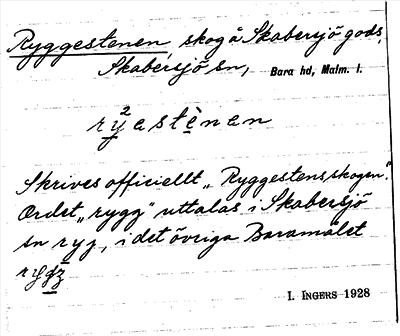 Ryggestenen, skog å Skabersjö gods,
Skabersjö sn, Bara hd, Malm. l.
Skrives officiellt „Ryggestensskogen”.
Ordet „rygg” uttalas i Skabersjö
sn ryz, i det övriga Baramålet
I. INGERS 1928